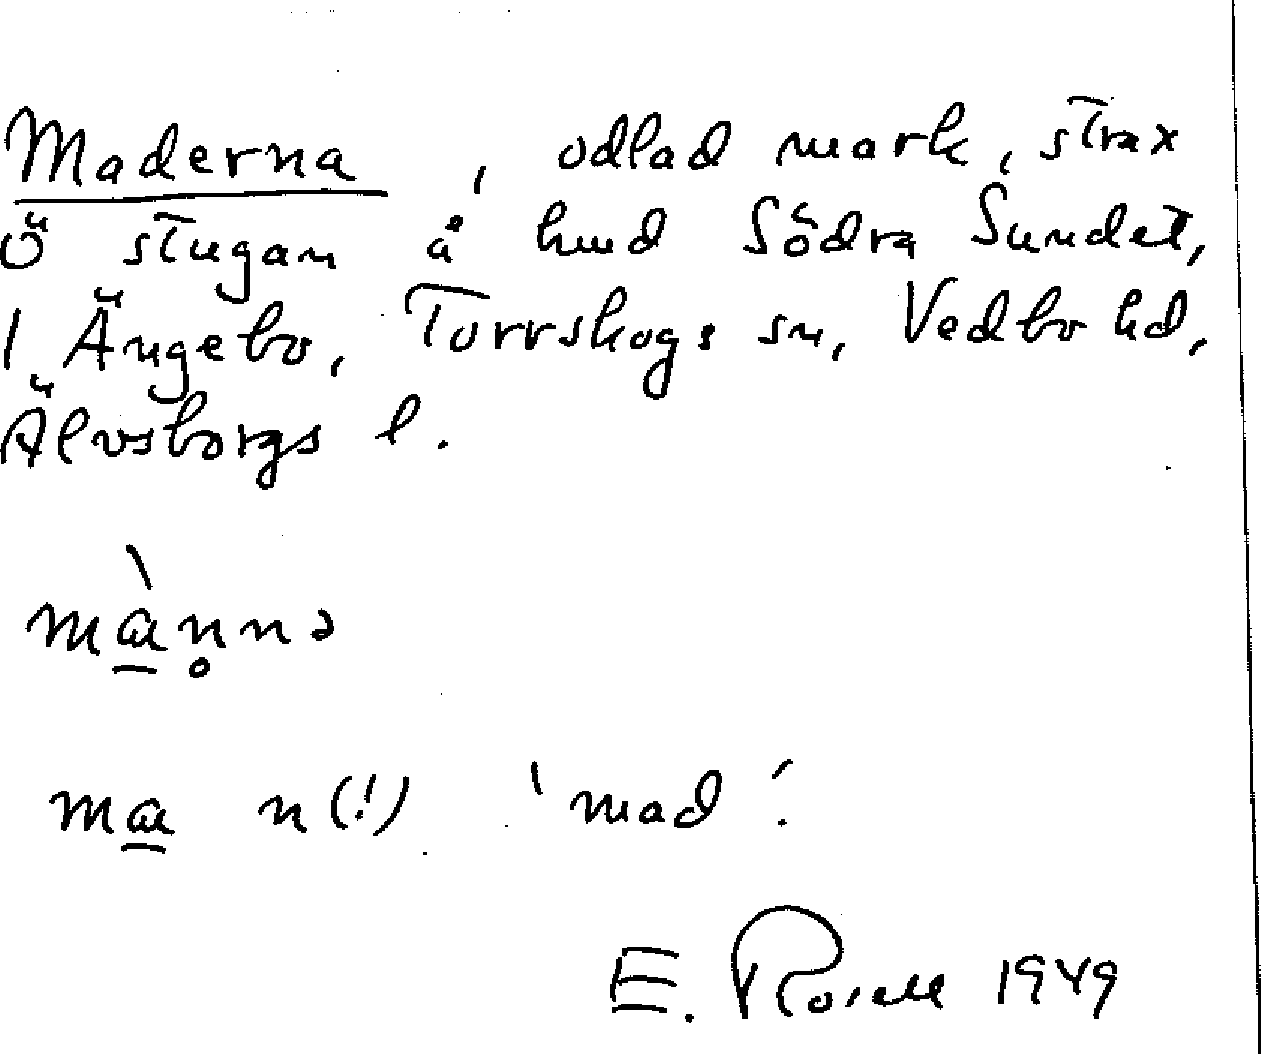 Maderna, odlad mark, strax
Ö stugan å hmd Södra Sundet,
i Ängebo, Torrskogs sn, Vedbo hd,
Älvsborgs l.
mɑ̀n̥nə
mɑ n(!) 'mad'.
E. Rosell 1949